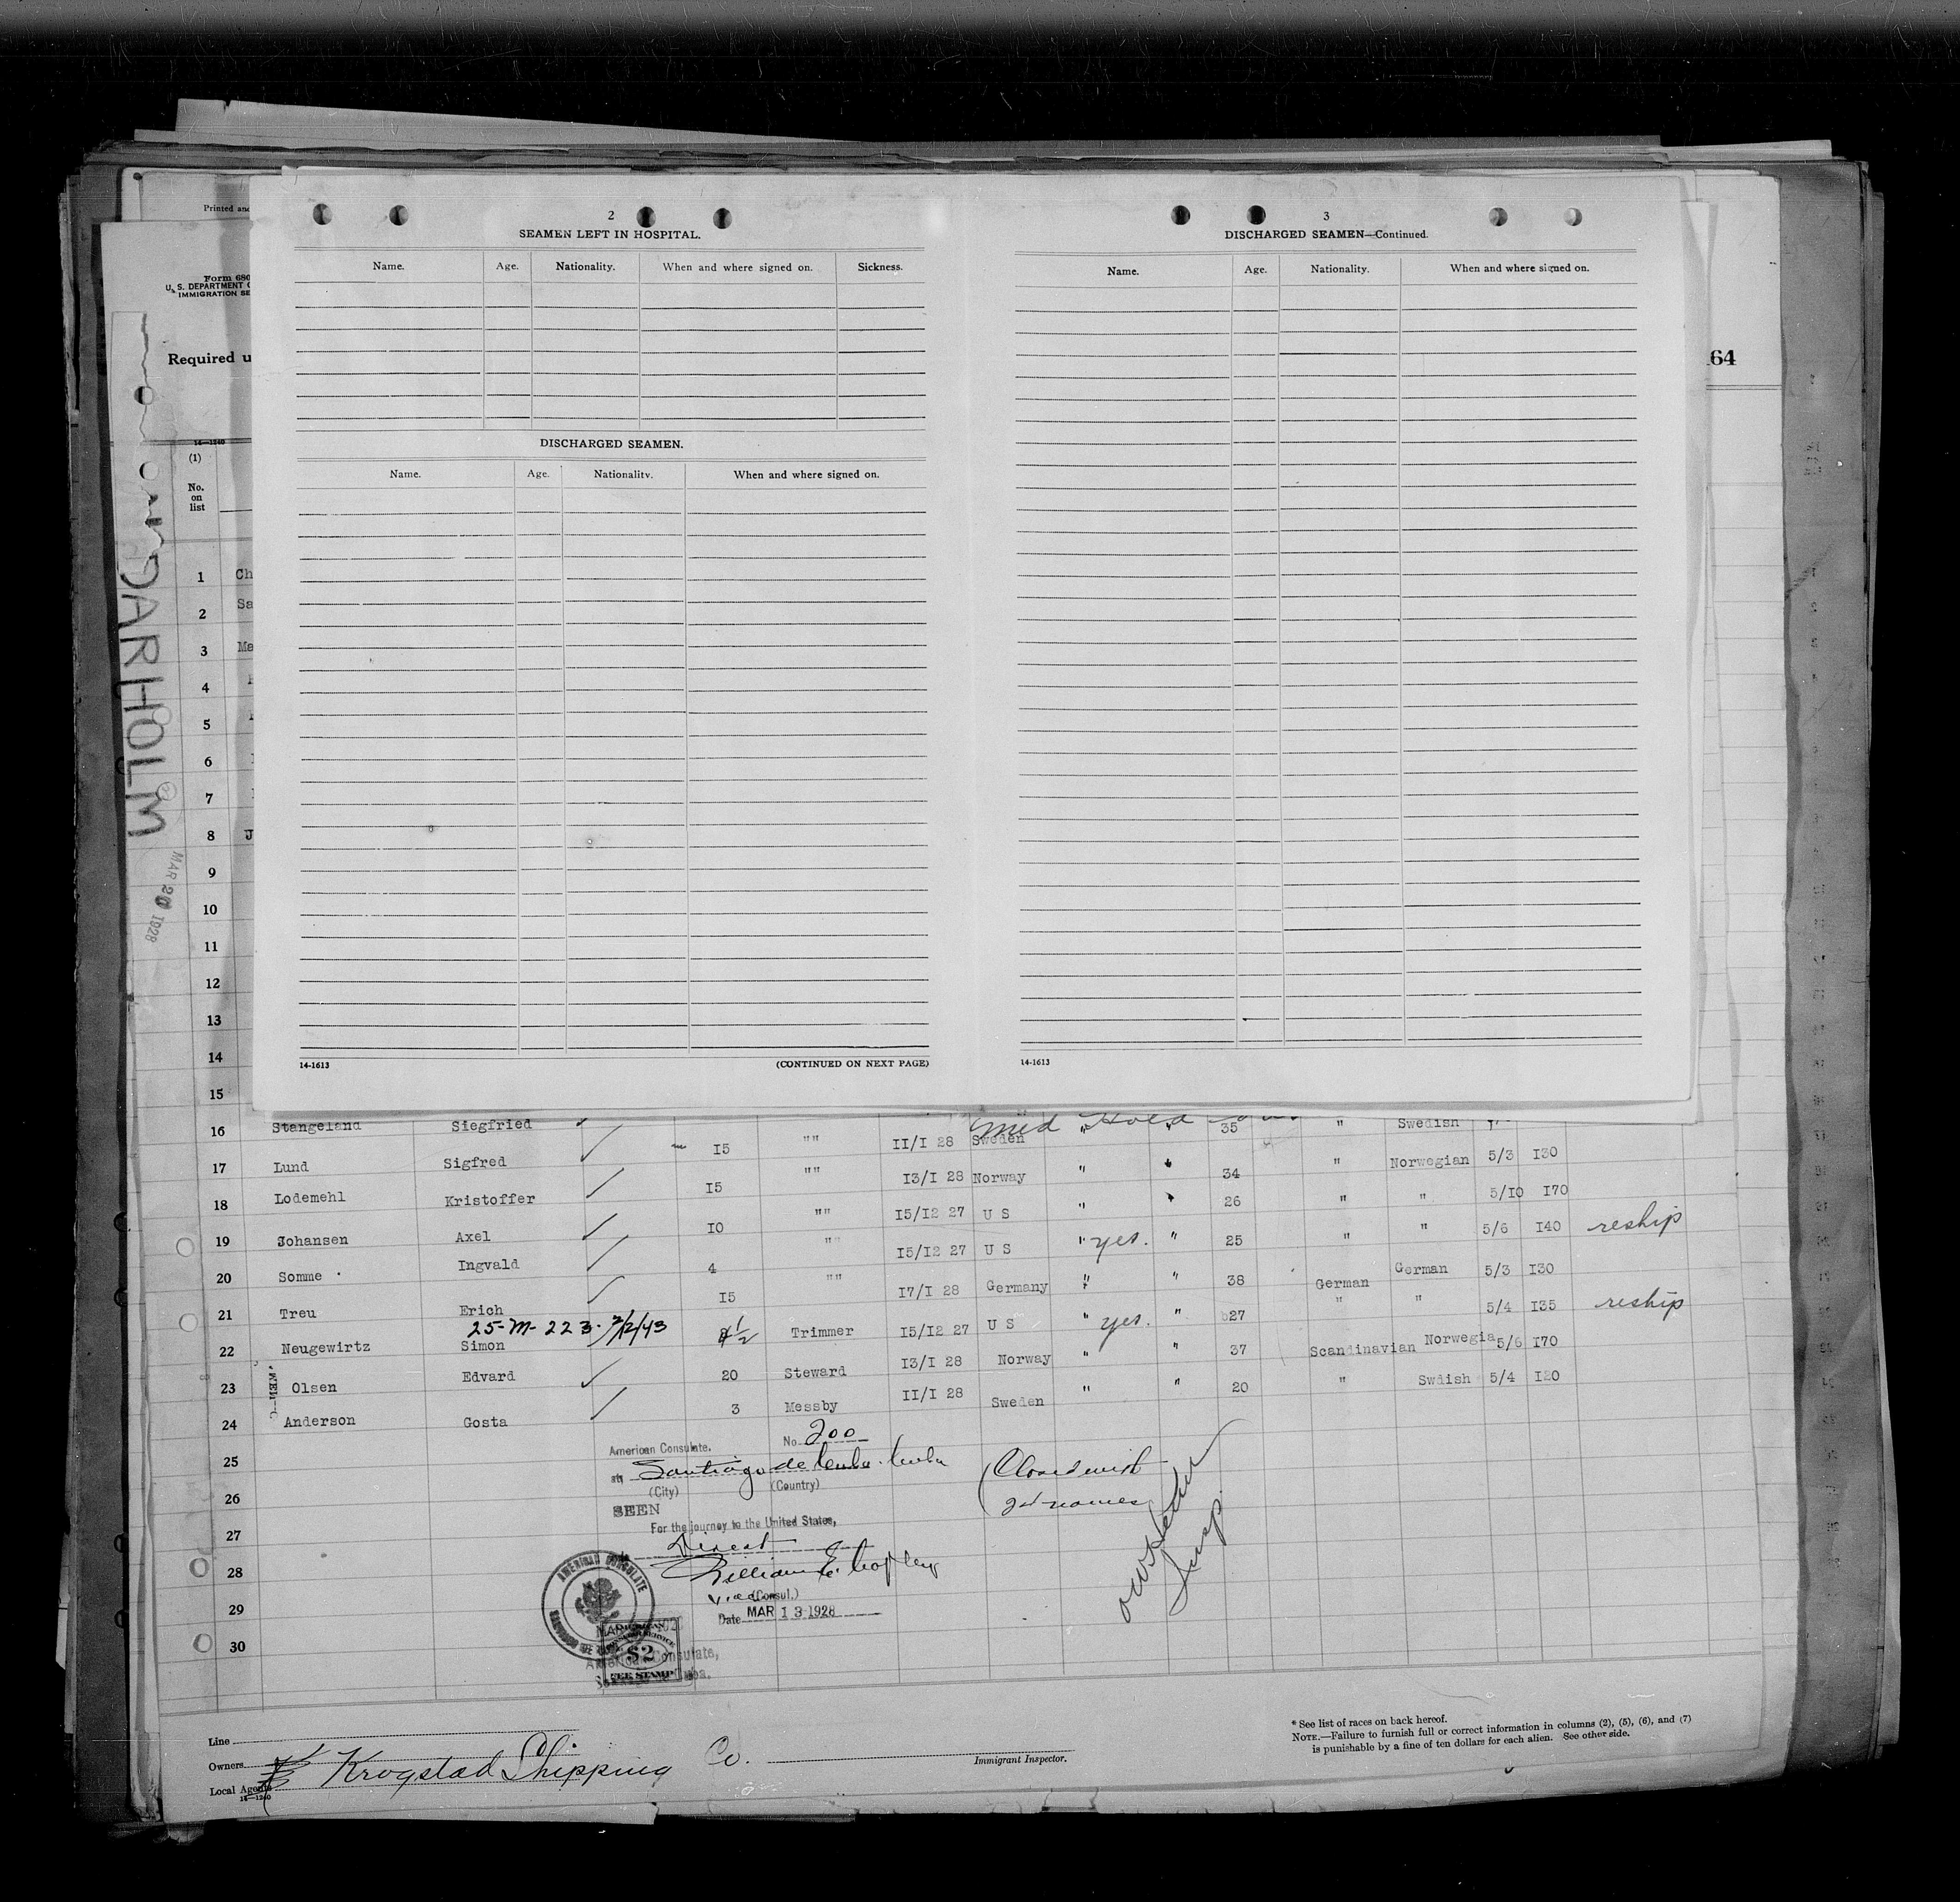 Printed and
Form 680
U. S. DEPARTMENT O
IMMIGRATION SE
Required u
164
14—1240
(1)
No.
on
list
DARHOLM
MAR 20 1928
2
SEAMEN LEFT IN HOSPITAL.
Name. Age. Nationality. When and where signed on. Sickness.
DISCHARGED SEAMEN.
Name. Age. Nationality. When and where signed on.
14-1613 (CONTINUED ON NEXT PAGE)
3
DISCHARGED SEAMEN—Continued.
Name. Age. Nationality. When and where signed on.
14-1613
1 Ch
2 Sa
3 Ma
4
5
6
7
8 J
9
10
11
12
13
14
15
16 Stangeland Siegfried 15 "" 11/1 28 Sweden " " 35 " Swedish
17 Lund Sigfred 15 "" 13/1 28 Norway " " 34 " Norwegian 5/3 130
18 Lodemehl Kristoffer 10 "" 15/12 27 U S " " 26 " " 5/10 170
19 Johansen Axel 4 "" 15/12 27 U S " yes. " 25 " " 5/6 140 reship
20 Somme Ingvald 15 "" 17/1 28 Germany " " 38 German German 5/3 130
21 Treu Erich 4 1/2 Trimmer 15/12 27 U S " yes. " 27 " " 5/4 135 reship
25-M-223. 2/2/43
22 Neugewirtz Simon 20 Steward 13/1 28 Norway " " 37 Scandinavian Norwegia 5/6 170
23 Olsen Edvard 3 Messby 11/1 28 Sweden " " 20 " Swdish 5/4 120
24 Anderson Gosta
25
26
27
28
29
30
American Consulate. No. 200
at Santiago de Cuba Cuba
(City) (Country)
SEEN
For the journey to the United States,
Direct
William E. Copley
Vice (Consul.)
Date MAR 13 1928
AMERICAN CONSULATE
$2
FEE STAMP
American Consulate,
Cuba.
(Closed with
24 names
Insp.
Line
Owners
Local Agents Krogstad Shipping Co.
14—1240
Immigrant Inspector.
* See list of races on back hereof.
NOTE.—Failure to furnish full or correct information in columns (2), (5), (6), and (7)
is punishable by a fine of ten dollars for each alien. See other side.